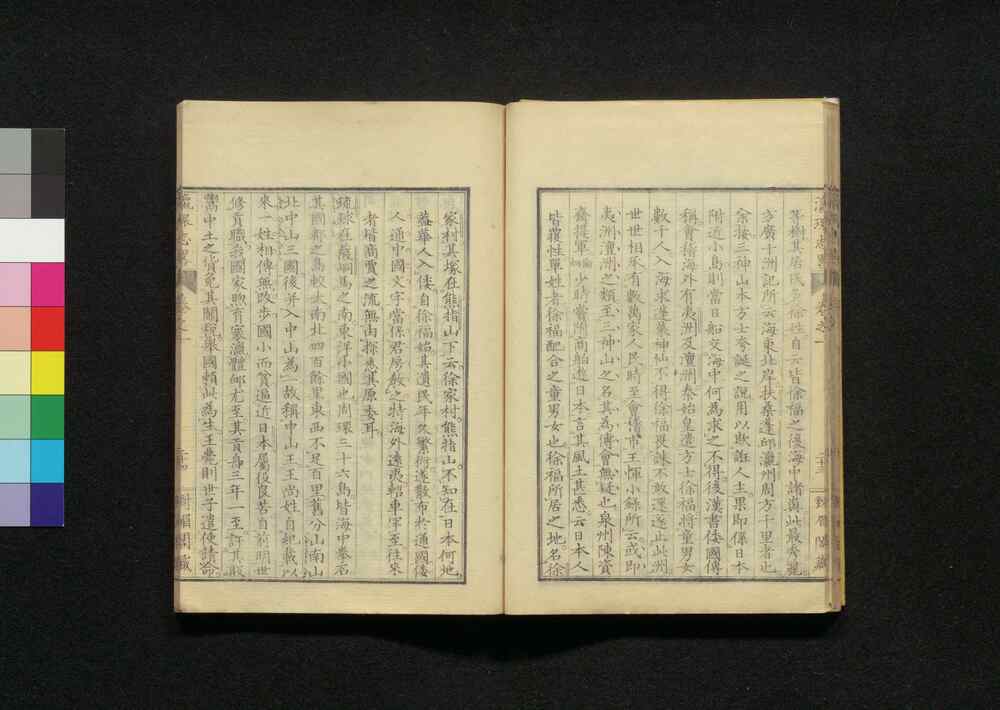 其居民多徐姓自云皆徐福之後海中諸嶼此最秀麗
方廣十洲記所云海東北岸扶桑蓬邱瀛州周方千里者也
余按三神山本方士夸誕之說用以欺誑人主果即係日本
附近小島則當日船交海中何爲求之不得後漢書倭國傳
稱會稽海外有夷洲及澶洲秦始皇遣方士徐福將童男女
數千人入海求蓬萊神仙不得徐福畏誅不敢還遂止此洲
世世相承有數萬家人民時至會稽市王惲小錄所云或即
夷洲澶洲之類至三神山之名其爲傅會無疑也泉州陳資
齋提軍少時嘗附商舶遊日本言其風土甚悉云日本人
皆覆姓單姓者徐福配合之童男女也徐福所居之地名徐
家村其塚在熊指山下云徐家村熊指山不知在日本何地
蓋華人入倭自徐福始其遺民年久繁衍遂散布於通國倭
人通中國文字當係君房教之特海外遠夷軺車罕至往來
者皆商賈之流無由探悉其原委耳
琉球在薩峒馬之南東洋小國也周環三十六島皆海中拳石
其國都之島較大南北四百餘里東西不足百里舊分山南山
北中山三國後併入中山爲一故稱中山王王尚姓自紀載以
來一姓相傳無改步國小而貧逼近日本屬役良苦自前明世
修貢職我國家煦育寰瀛體卹尤至其貢爲三年一至許其販
鬻中土之貨免其關稅舉國賴此爲生王薨則世子遣使請命